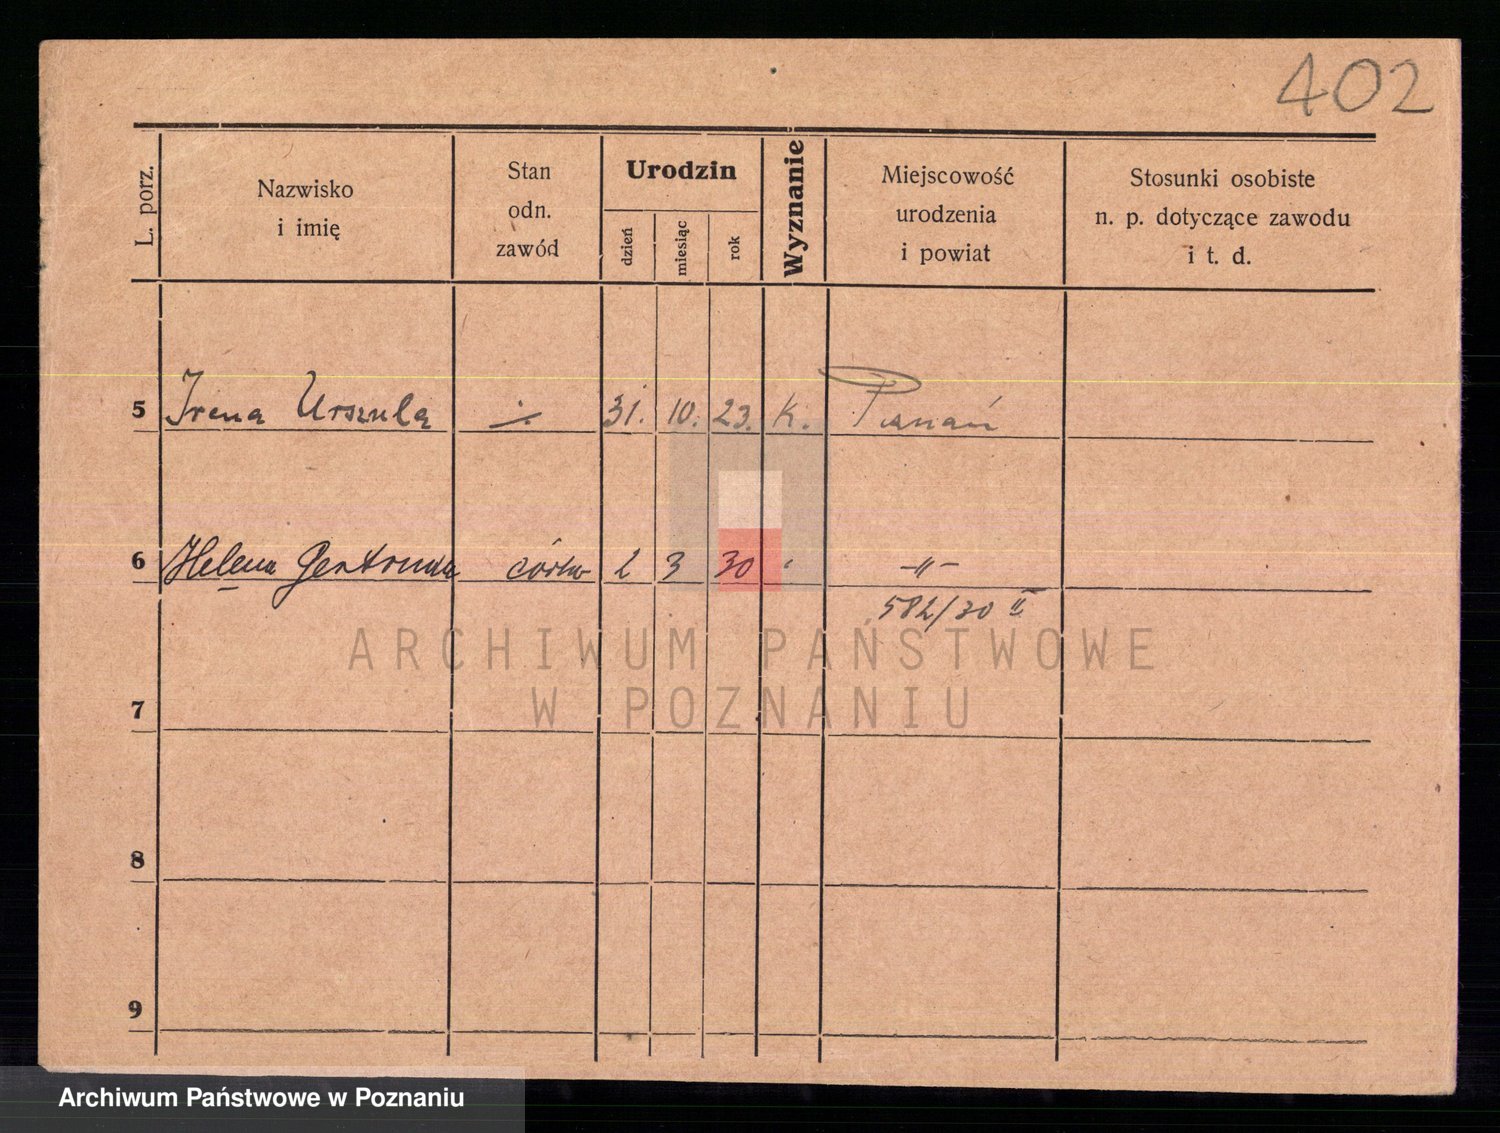 402
L. porz.
Nazwisko
i imię
Stan
odn.
zawód
Urodzin
dzień
miesiąc
rok
Wyznanie
Miejscowość
urodzenia
i powiat
Stosunki osobiste
n. p. dotyczące zawodu
i t. d.
5 Irena Urszula ·/. 31. 10. 23. K. Poznań
6 Helena Gertruda córka 2 3 30 " -"-
582/30 II
ARCHIWUM PAŃSTWOWE
W POZNANIU
7
8
9
Archiwum Państwowe w Poznaniu